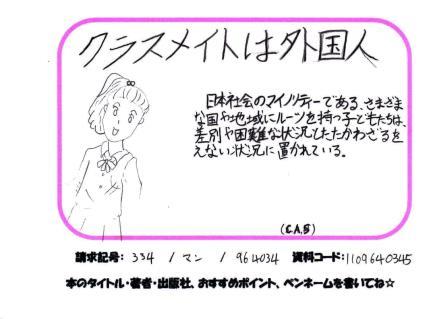 クラスメイトは外国人
日本社会のマイノリティーである、さまざま
な国や地域にルーツを持つ子どもたちは、
差別や困難な状況でたたかわざるを
えない状況に置かれている。
(C.A.S)
請求記号: 334 / マン / 964034 資料コード:1109640345
本のタイトル・著者・出版社、おすすめポイント、ペンネームを書いてね☆